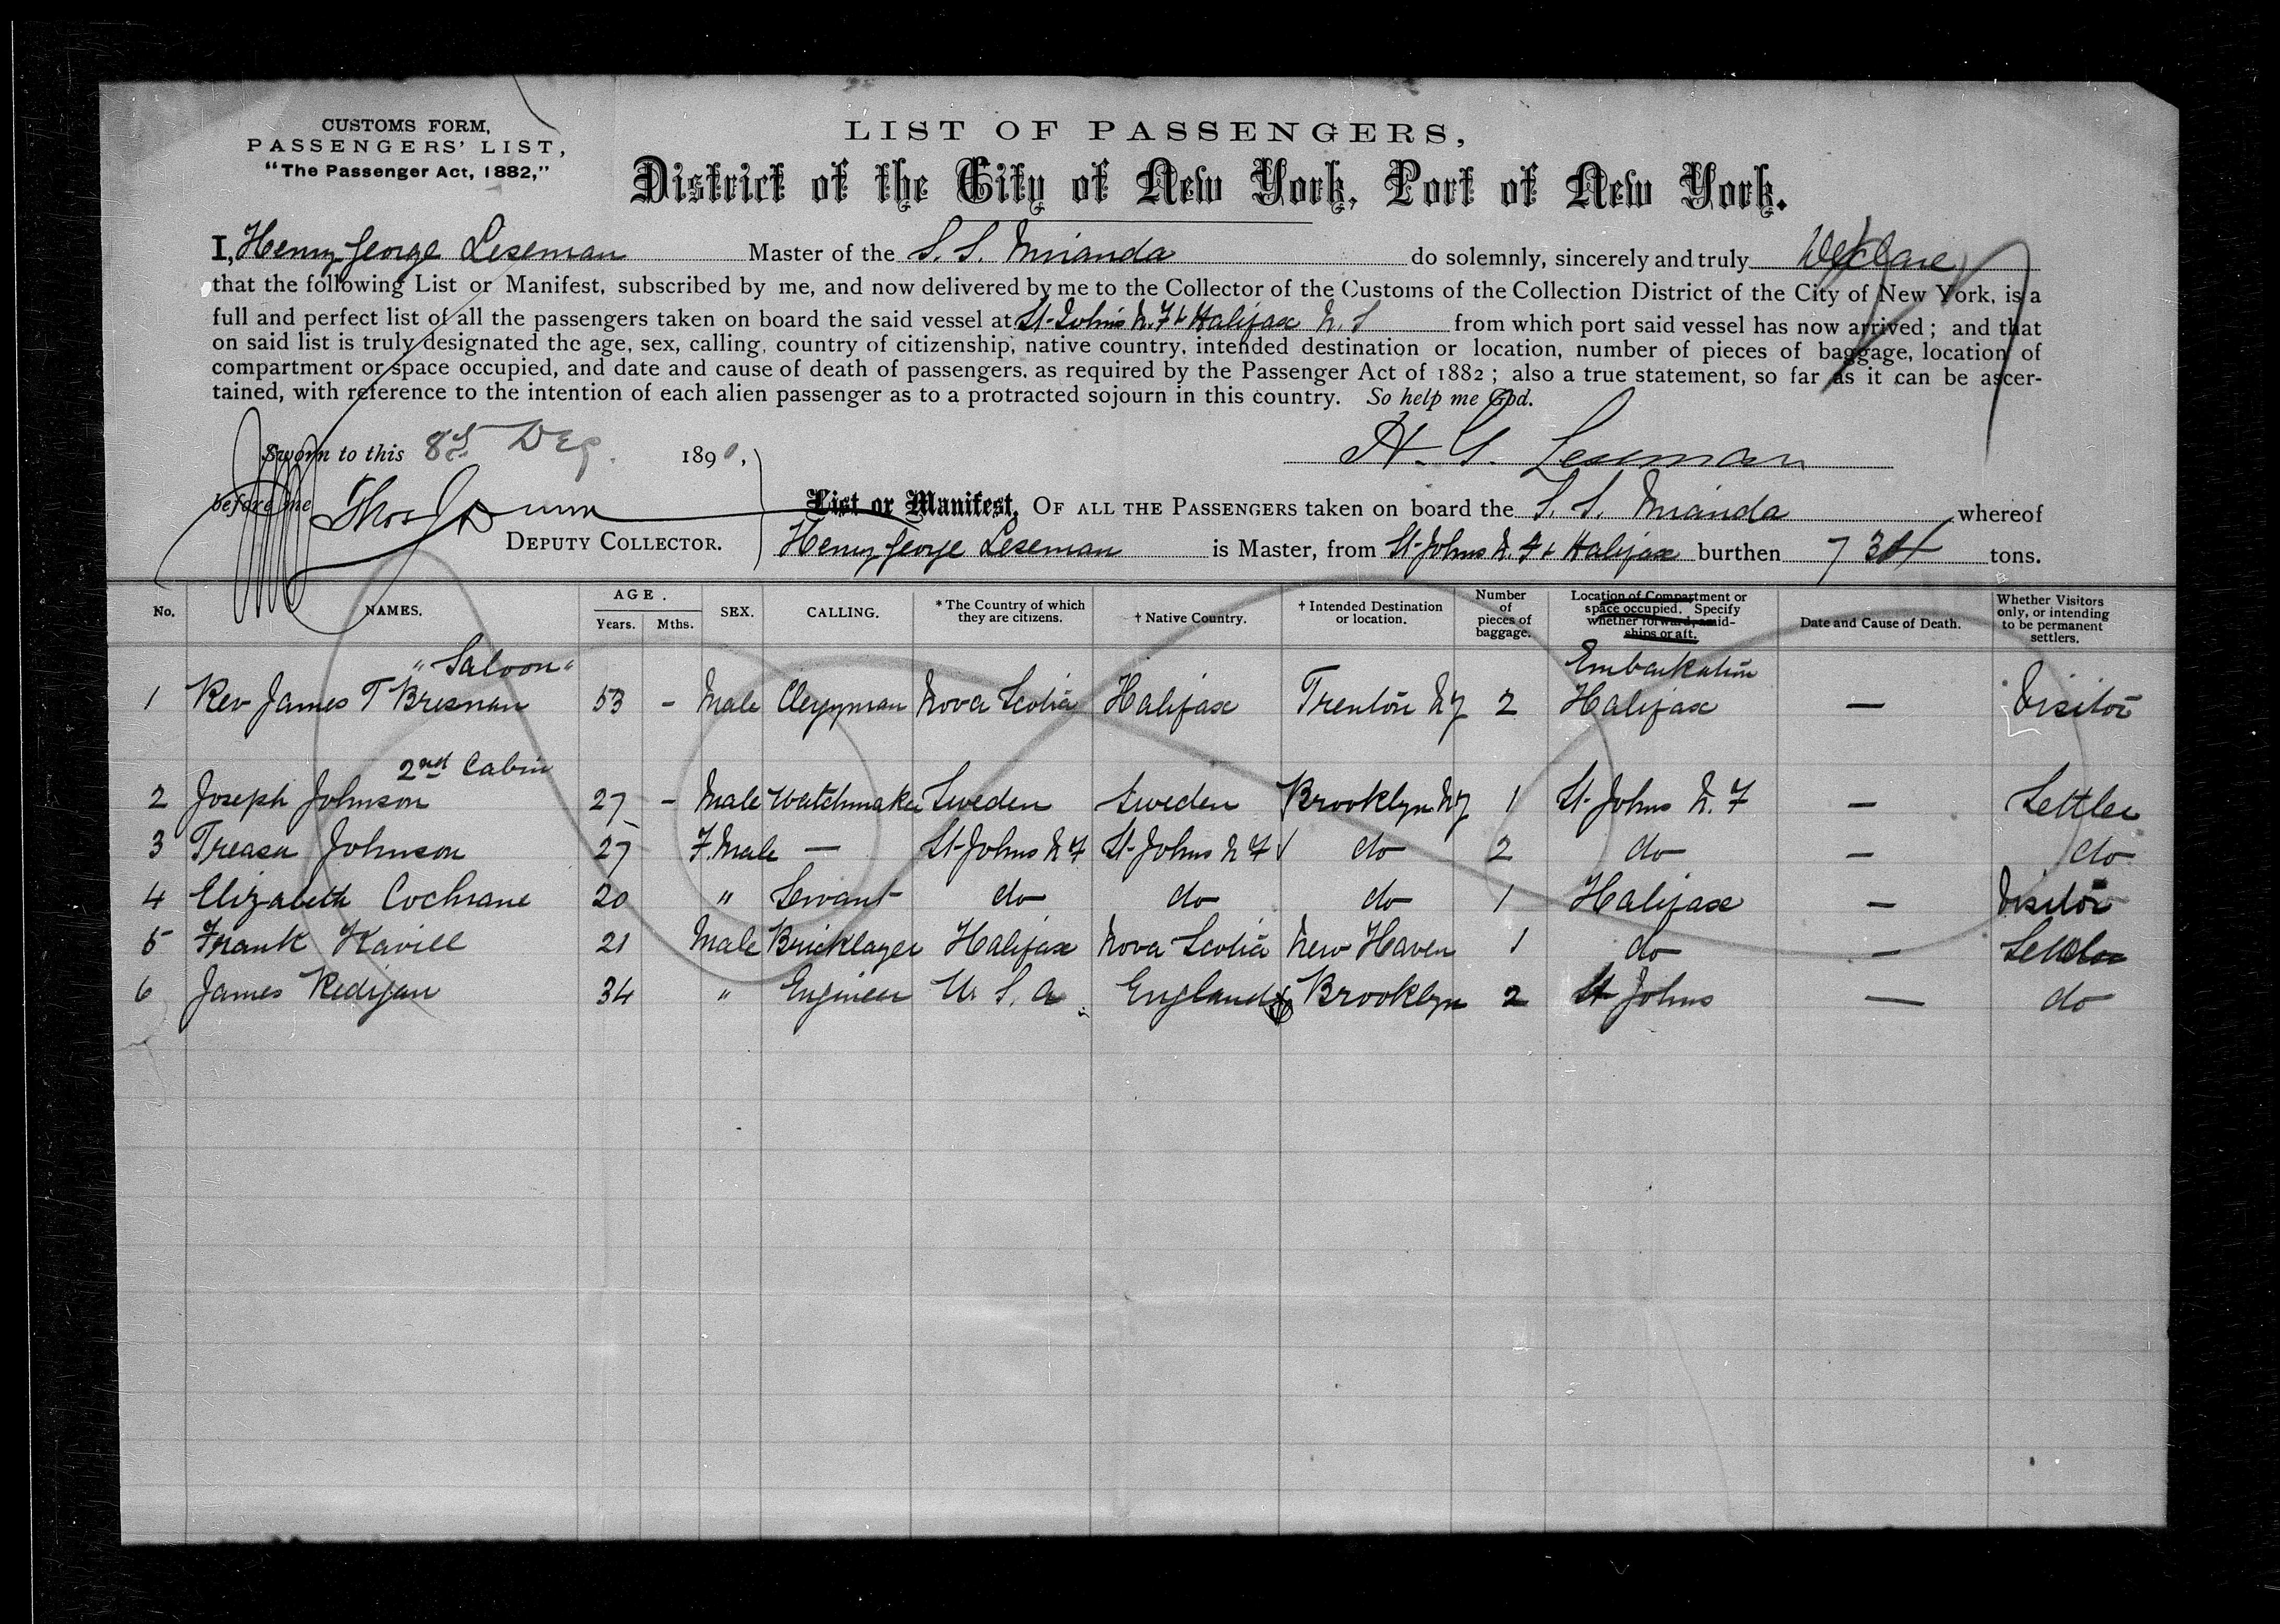 CUSTOMS FORM,
PASSENGERS' LIST,
"The Passenger Act, 1882,"
LIST OF PASSENGERS,
District of the City of New York, Port of New York.
I, Henry George Leseman Master of the S. S. Miranda do solemnly, sincerely and truly Declare
that the following List or Manifest, subscribed by me, and now delivered by me to the Collector of the Customs of the Collection District of the City of New York, is a
full and perfect list of all the passengers taken on board the said vessel at St. Johns N. F & Halifax N. S from which port said vessel has now arrived; and that
on said list is truly designated the age, sex, calling, country of citizenship, native country, intended destination or location, number of pieces of baggage, location of
compartment or space occupied, and date and cause of death of passengers, as required by the Passenger Act of 1882; also a true statement, so far as it can be ascer-
tained, with reference to the intention of each alien passenger as to a protracted sojourn in this country. So help me God.
Sworn to this 8th Dec. 1890,
H. G. Leseman
before me Thos J Dunn
DEPUTY COLLECTOR.
List or Manifest, OF ALL THE PASSENGERS taken on board the S. S. Miranda whereof
Henry George Leseman is Master, from St. Johns N. F & Halifax burthen 734 tons.
No. NAMES. AGE. Years. Mths. SEX. CALLING. * The Country of which they are citizens. † Native Country. † Intended Destination or location. Number of pieces of baggage. Location of Compartment or space occupied. Specify whether forward, amid-ships or aft. Date and Cause of Death. Whether Visitors only, or intending to be permanent settlers.
"Saloon" Embarkation
1 Rev James T Bresnan 53 - Male Clergyman Nova Scotia Halifax Trenton NJ 2 Halifax — Visitor
2nd Cabin
2 Joseph Johnson 27 - Male Watchmaker Sweden Sweden Brooklyn NY 1 St. Johns N. F — Settler
3 Treasa Johnson 27 F.Male — St. Johns N F St. Johns N F do 2 do — do
4 Elizabeth Cochrane 20 " Servant do do do 1 Halifax — Visitor
5 Frank Kavill 21 Male Bricklayer Halifax Nova Scotia New Haven 1 do — Settler
6 James Redigan 34 " Engineer U. S. A England Brooklyn 2 St Johns — do